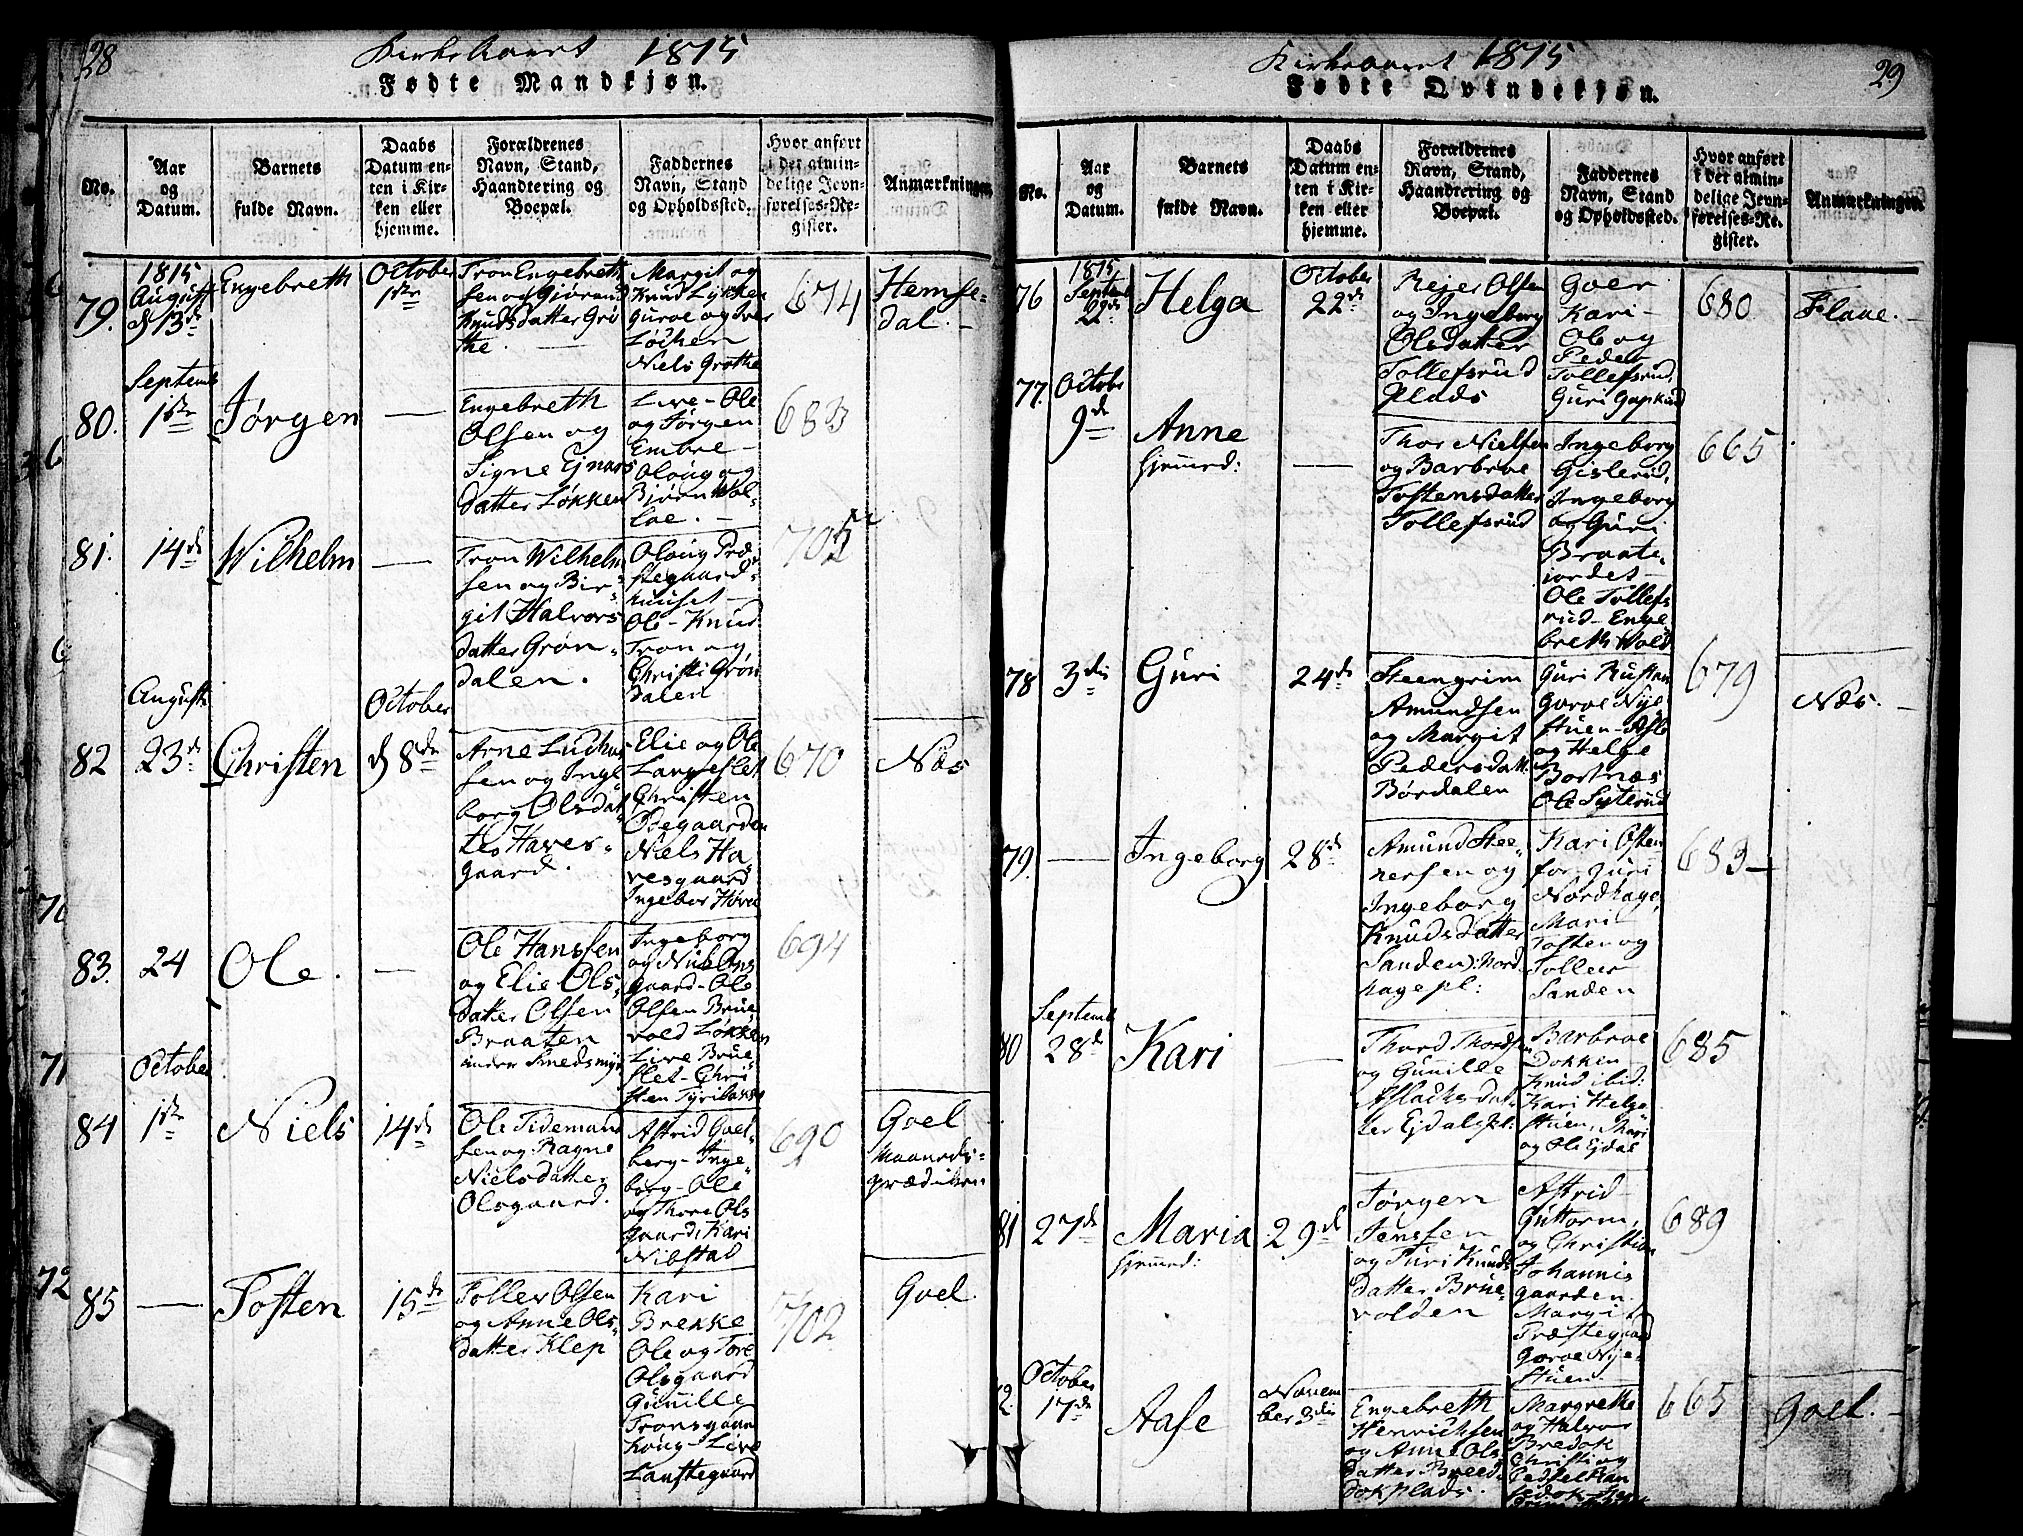 28
Kirkeaaret 1815
Fødte Mandkjøn.
No.
Aar
og
Datum.
Barnets
fulde Navn.
Daabs
Datum en-
ten i Kir-
ken eller
hjemme.
Forældrenes
Navn, Stand,
Haandtering og
Boepæl.
Faddernes
Navn, Stand
og Opholdssted.
Hvor anført
i der almin-
delige Jevn-
førelses-Re-
gister.
Anmærkninger
79.
1815
August
d 13de
Engebreth
October
1ste
Tron Engebreth
sen og Gjørand
Knudsdatter Grø
the.
Margit og
Knud Lykken
Guroe og Iver
Løchen
Niels Grøthe
674
Hemse-
dal.
80.
Septemb
1ste
Jørgen
—
Engebreth
Olsen og
Signe Ejnars
datter Løkken
Live - Ole
og Jørgen
Embre -
Oloug og
Bjørn Wol-
loe.
683
81.
14de
Wilhelm
—
Tron Wilhelm
sen og Bir-
git Halvors
datter Grøn-
dalen.
Oloug Præ-
stegaard-
huuset -
Ole - Knud
Tron og
Christi Grøn
dalen
705
82
August
23de
Christen
October
d 8de
Arne Ludhvs
sen og Inge
borg Olsdat
ter Haves-
gaard.
Elie og Ole
Langeslet
Christen
Øsegaarden
Niels Ha-
vesgaard
Ingebor Høve
670
Næs
83.
24
Ole.
—
Ole Hanssen
og Elie Ols-
datter Olsen
Braaten
under Smedsmyr
Ingeborg
og Niels Ons
gaard - Ole
Olsen Brue-
vold Løkken
Live Brue-
flet - Chri
sten Tyribakke
694
84
October
1ste
Niels
14de
Ole Tidemand
sen og Ragne
Nielsdatter
Olsgaard.
Astrid Goels-
berg - Inge-
borg - Ole
og Thore Ols
gaard, Kari
Nibstad
690
Goel
Maaneds-
prædiken
85
—
Tosten
15de
Toller Olsen
og Anne Ols-
datter Klep
Kari
Brekke
Ole og Tore
Olsgaard
Gunille
Tronsgaar
houg - Live
Laustegaard
702
Goel.
29
Kirkeaaret 1815
Fødte Qvindekjøn.
No.
Aar
og
Datum.
Barnets
fulde Navn.
Daabs
Datum en-
ten i Kir-
ken eller
hjemme.
Forældrenes
Navn, Stand,
Haandtering og
Boepæl.
Faddernes
Navn, Stand
og Opholdssted.
Hvor anført
i der almin-
delige Jevn-
førelses-Re-
gister.
Anmærkninger
76
1815
Septemb
22de
Helga
October
22de
Rejer Olsen
og Ingeborg
Olsdatter
Tollefsrud
Plads
Goer
Kari -
Ole og
Peder
Tollefsrud,
Guri Gapkind
680
Flaae.
77.
Octobr
9de
Anne
hjemmed:
—
Thor Nielsen
og Barbroe
Tostensdatter
Tollefsrud
Ingeborg
Gislerud,
Ingeborg
og Guri
Braate-
jordet -
Ole Tollefs
rud - Enge
breth Wold
665
78
3die
Guri
24de
Steengrim
Amundsen
og Margit
Pedersdatt
Børdalen
Guri Rustan
Goroe Nye
stuen - Asle
og Helge
Bortnæs
Ole Systerud
679
Næs.
79.
—
Ingeborg
28de
Amund Stee-
nersen og
Ingeborg
Knudsdatter
Sanden): Nord
hage pl:
Kari Osten
for, Guri
Nordhage,
Mari
Tosten og
Toller
Sanden
683
80
Septemb
28de
Kari
—
Thord Thordsen
og Gunille
Aslachsdat
ter Ejdalspl:
Barbroe
Dokken
Knud ibid:
Kari Helge
stuen, Mari
og Ole Ejdal
685
81
27de
Maria
hjemmed:
29de
Jørgen
Jenssen
og Turi Knuds
datter Brue-
volden
Astrid
Guttorm,
og Christian
Johannis
gaarden.
Margit
Præstegaard
Goroe Nye-
stuen.
689
2.
October
17de
Aase
Novem
ber 3die
Engebreth
Henrichsen
og Anne Ols
datter Breed-
dokplads.
Margrethe
og Halvor
Bredok
Christi og
665
Goel.